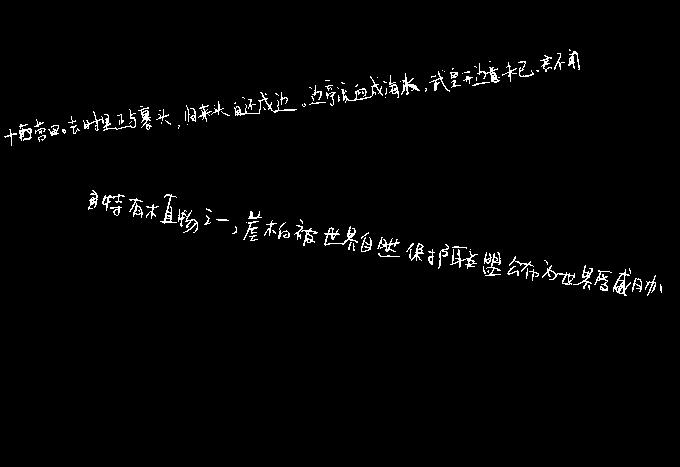 十西营田。去时里正与裹头，归来头白还戍边。边亭流血成海水，武皇开边意未已。君不闻
特有木植物之一，崖柏被世界自然保护联盟公布为世界